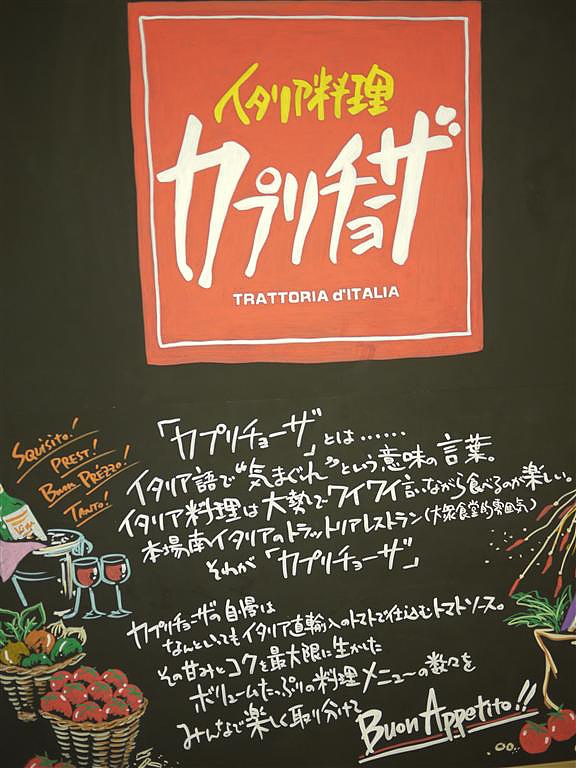 イタリア料理
カプリチョーザ
TRATTORIA d'ITALIA
「カプリチョーザ」とは……
イタリア語で“気まぐれ”という意味の言葉。
イタリア料理は大勢でワイワイ言いながら食べるのが楽しい。
本場南イタリアのトラットリアレストラン(大衆食堂的雰囲気)
それが「カプリチョーザ」
SQUISITO!
PREST!
BUON PREZZO!
TANTO!
カプリチョーザの自慢は
なんといってもイタリア直輸入のトマトで仕込むトマトソース。
その甘みとコクを最大限に生かした
ボリュームたっぷりの料理メニューの数々を
みんなで楽しく取り分けて
Buon Appetito!!